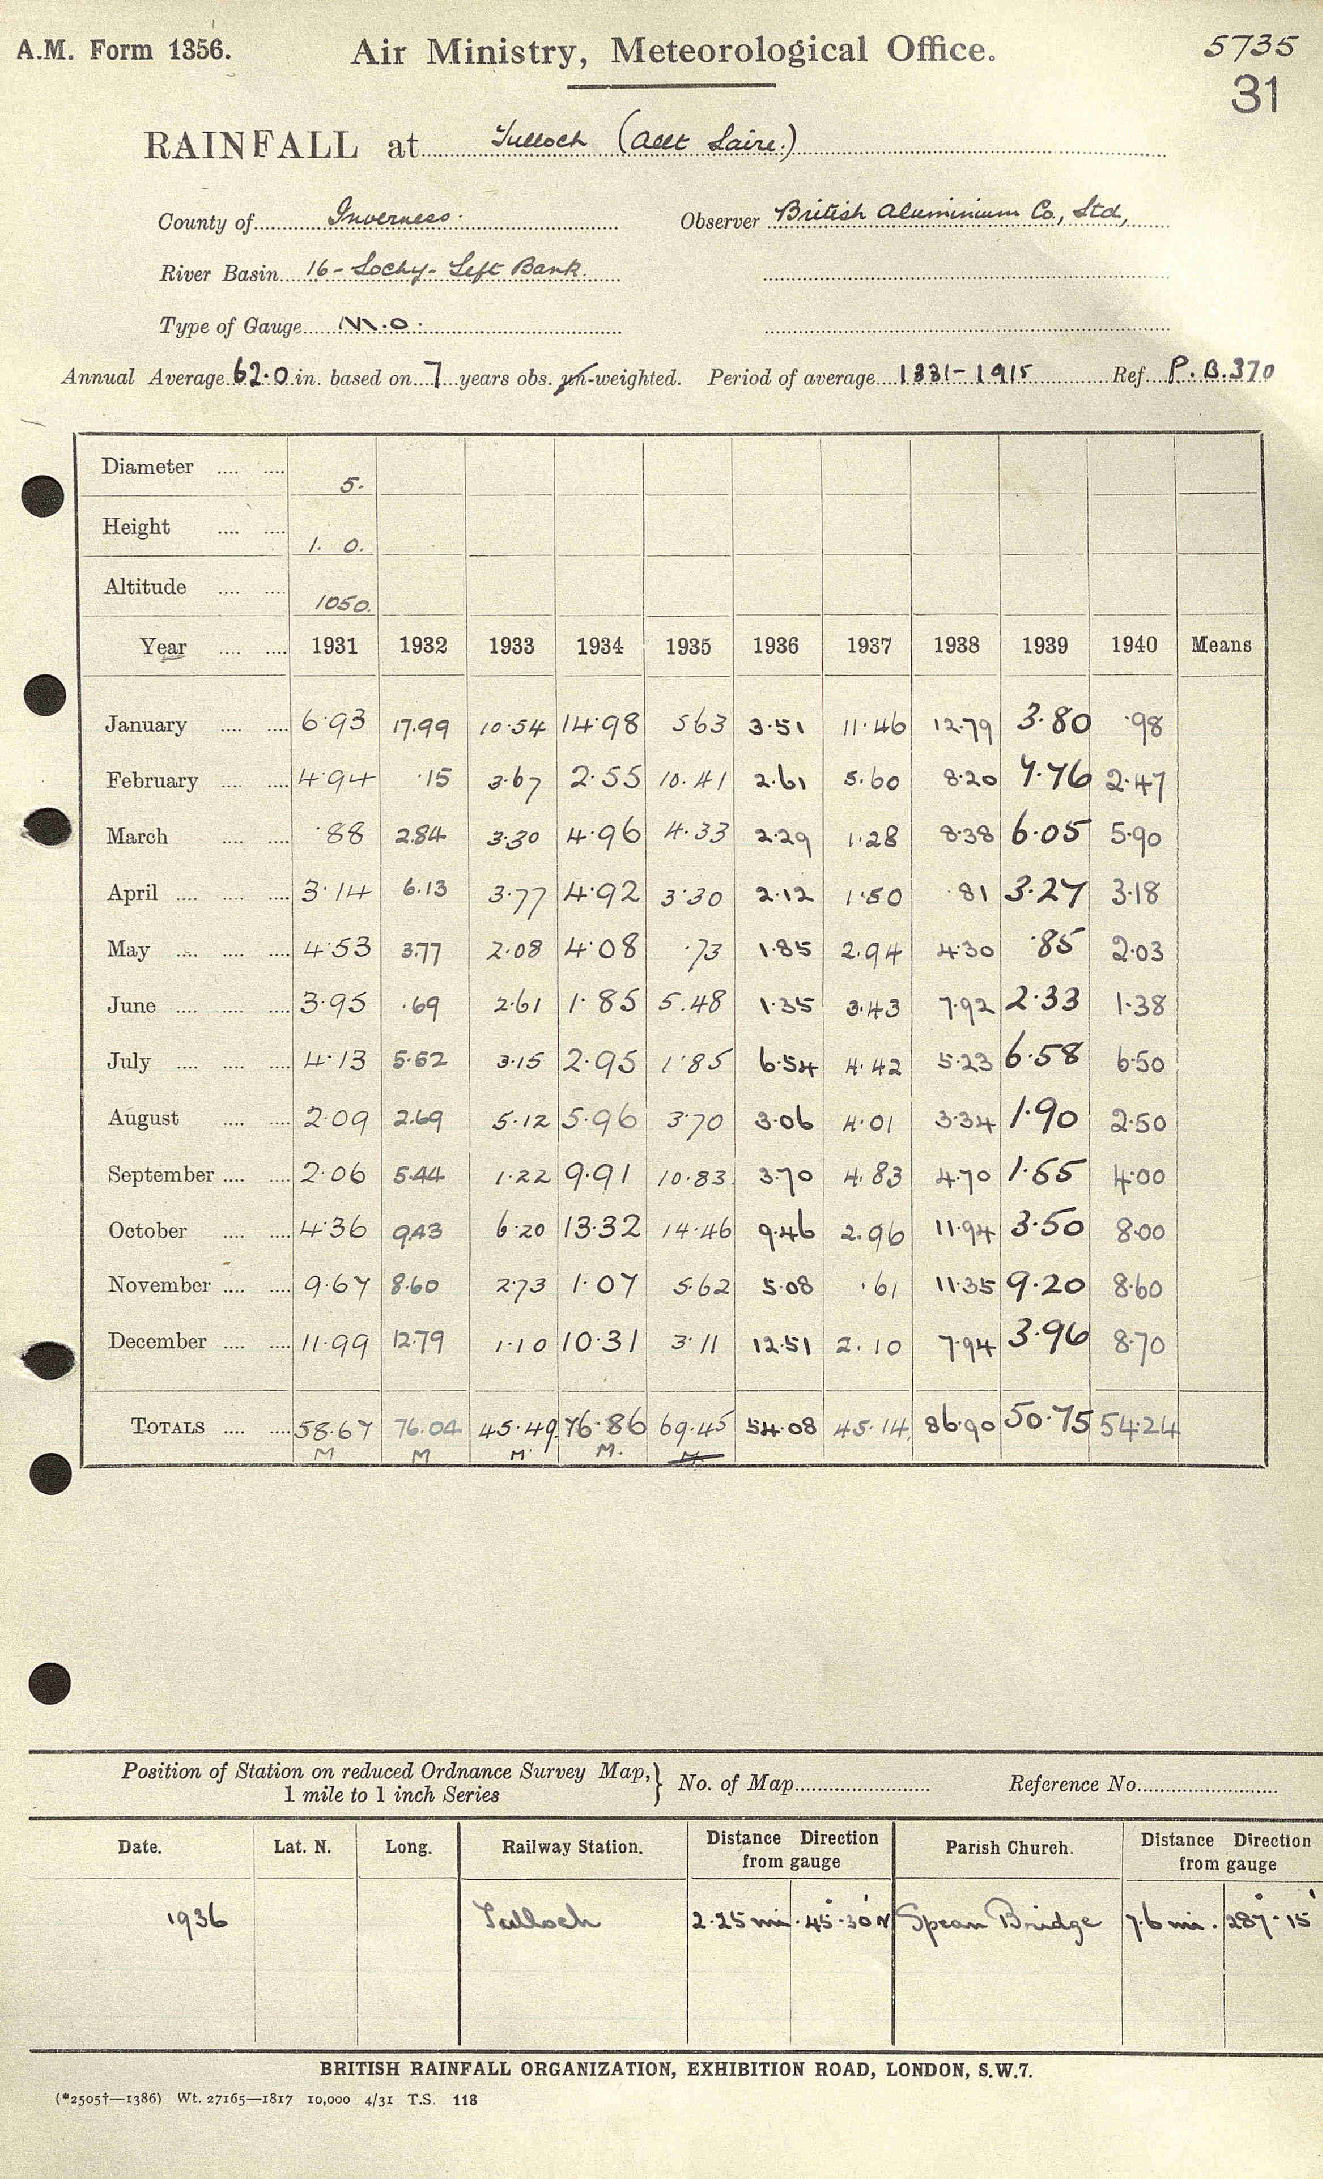 A.M. Form 1356. Air Ministry, Meteorological Office. 5735
31
RAINFALL at Tulloch (Allt Laire.)
County of Inverness. Observer British Aluminium Co., Ltd,
River Basin 16 - Lochy - Left Bank
Type of Gauge M.O.
Annual Average 62.0 in. based on 7 years obs. un-weighted. Period of average 1881-1915 Ref. P.B.370
Diameter 5.
Height 1. 0.
Altitude 1050.
Year 1931 1932 1933 1934 1935 1936 1937 1938 1939 1940 Means
January 6.93 17.99 10.54 14.98 5.63 3.51 11.46 12.79 3.80 .98
February 4.94 .15 3.67 2.55 10.41 2.61 5.60 8.20 7.76 2.47
March .88 2.84 3.30 4.96 4.33 2.29 1.28 8.38 6.05 5.90
April 3.14 6.13 3.77 4.92 3.30 2.12 1.50 .81 3.27 3.18
May 4.53 3.77 2.08 4.08 .73 1.85 2.94 4.30 .85 2.03
June 3.95 .69 2.61 1.85 5.48 1.35 3.43 7.92 2.33 1.38
July 4.13 5.52 3.15 2.95 1.85 6.54 4.42 5.23 6.58 6.50
August 2.09 2.69 5.12 5.96 3.70 3.06 4.01 3.34 1.90 2.50
September 2.06 5.44 1.22 9.91 10.83 3.70 4.83 4.70 1.55 4.00
October 4.36 9.43 6.20 13.32 14.46 9.46 2.96 11.94 3.50 8.00
November 9.67 8.60 2.73 1.07 5.62 5.08 .61 11.35 9.20 8.60
December 11.99 12.79 1.10 10.31 3.11 12.51 2.10 7.94 3.96 8.70
TOTALS 58.67 76.04 45.49 76.86 69.45 54.08 45.14 86.90 50.75 54.24
M M M. M. M.
Position of Station on reduced Ordnance Survey Map, 1 mile to 1 inch Series } No. of Map Reference No.
Date. Lat. N. Long. Railway Station. Distance Direction from gauge Parish Church. Distance Direction from gauge
1936 Tulloch 2.25 mi. 45°-30'N Spean Bridge 7.6 mi. 287°-15'
BRITISH RAINFALL ORGANIZATION, EXHIBITION ROAD, LONDON, S.W.7.
(*2505†—1386) Wt. 27165—1817 10,000 4/31 T.S. 118